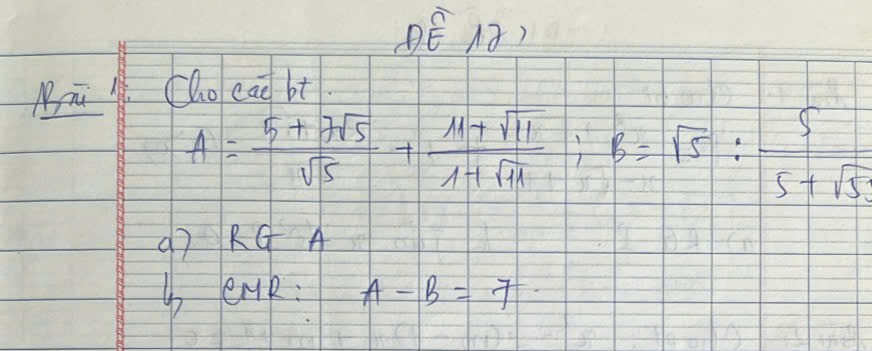 ĐỀ 17
Bài 1: Cho các bt.
A = \frac{5 + 7\sqrt{5}}{\sqrt{5}} + \frac{11 + \sqrt{11}}{1 + \sqrt{11}} ; B = \sqrt{5} : \frac{5}{5 + \sqrt{55}}
a) RG A
b) CMR: A - B = 7.